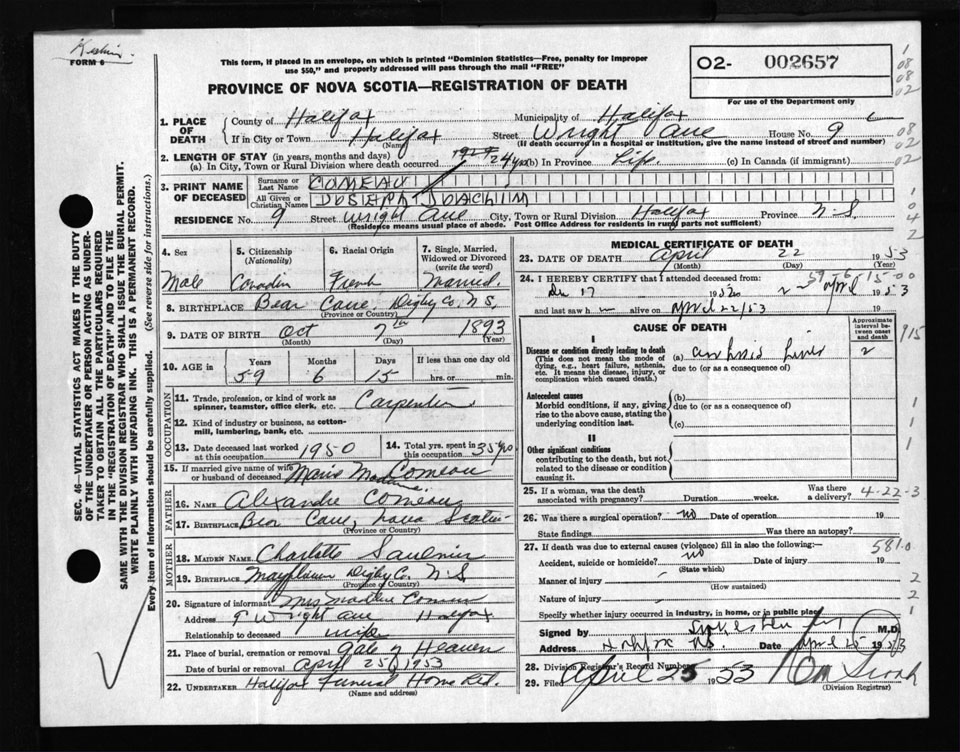 FORM 6
This form, if placed in an envelope, on which is printed "Dominion Statistics—Free, penalty for improper
use $50," and properly addressed will pass through the mail "FREE"
PROVINCE OF NOVA SCOTIA—REGISTRATION OF DEATH
O2- 002657
For use of the Department only
1. PLACE OF DEATH
County of Halifax Municipality of Halifax
If in City or Town Halifax Street Wright Ave House No. 9
(Name) (If death occurred in a hospital or institution, give the name instead of street and number)
2. LENGTH OF STAY (in years, months and days)
(a) In City, Town or Rural Division where death occurred 24 yrs (b) In Province Life (c) In Canada (if immigrant)
3. PRINT NAME OF DECEASED
Surname or Last Name COMEAU
All Given or Christian Names JOSEPH JOACHIM
RESIDENCE No. 9 Street Wright Ave City, Town or Rural Division Halifax Province N-S.
(Residence means usual place of abode. Post Office Address for residents in rural parts not sufficient)
4. Sex Male
5. Citizenship (Nationality) Canadian
6. Racial Origin French
7. Single, Married, Widowed or Divorced (write the word) Married.
8. BIRTHPLACE Bear Cove, Digby Co, N.S,
(Province or Country)
9. DATE OF BIRTH Oct 7th 1893
(Month) (Day) (Year)
10. AGE in Years Months Days If less than one day old
59 6 15 hrs. or min.
OCCUPATION
11. Trade, profession or kind of work as spinner, teamster, office clerk, etc. Carpenter
12. Kind of industry or business, as cotton-mill, lumbering, bank, etc.
13. Date deceased last worked at this occupation 1950
14. Total yrs. spent in this occupation 35 yrs
15. If married give name of wife or husband of deceased Comeau
FATHER
16. NAME Alexandre Comeau
17. BIRTHPLACE Bear Cove, Nova Scotia
(Province or Country)
MOTHER
18. MAIDEN NAME Charlotte Saulnier
19. BIRTHPLACE Mayflower Digby Co. N-S
(Province or Country)
20. Signature of informant Mrs Comeau
Address 9 Wright Ave Halifax
Relationship to deceased wife
21. Place of burial, cremation or removal Gate of Heaven
Date of burial or removal April 25 / 1953
22. UNDERTAKER Halifax Funeral Home Ltd.
(Name and address)
MEDICAL CERTIFICATE OF DEATH
23. DATE OF DEATH April 22 1953
(Month) (Day) (Year)
24. I HEREBY CERTIFY that I attended deceased from:
59-6-15-00
April 1953
and last saw h alive on April 22/53 19
CAUSE OF DEATH
Approximate interval between onset and death
I
Disease or condition directly leading to death
(This does not mean the mode of dying, e.g., heart failure, asthenia, etc. It means the disease, injury, or complication which caused death.)
(a)
due to (or as a consequence of)
Antecedent causes
Morbid conditions, if any, giving rise to the above cause, stating the underlying condition last.
(b)
due to (or as a consequence of)
(c)
II
Other significant conditions
contributing to the death, but not related to the disease or condition causing it.
25. If a woman, was the death associated with pregnancy? Duration weeks. Was there a delivery? 4-22-3
26. Was there a surgical operation? no Date of operation 19
State findings Was there an autopsy?
27. If death was due to external causes (violence) fill in also the following:— 581-0
Accident, suicide or homicide? no Date of injury 19
(State which)
Manner of injury
(How sustained)
Nature of injury
Specify whether injury occurred in industry, in home, or in public place
Signed by M.D.
Address Halifax N.S. Date April 25 1953
28. Division Registrar's Record Number
29. Filed April 25 1953
(Division Registrar)
SEC. 46—VITAL STATISTICS ACT MAKES IT THE DUTY
OF THE UNDERTAKER OR PERSON ACTING AS UNDER-
TAKER TO OBTAIN ALL THE PARTICULARS REQUIRED
IN THE "REGISTRATION OF DEATH" AND TO FILE THE
SAME WITH THE DIVISION REGISTRAR WHO SHALL ISSUE THE BURIAL PERMIT.
WRITE PLAINLY WITH UNFADING INK. THIS IS A PERMANENT RECORD.
Every item of Information should be carefully supplied. (See reverse side for instructions.)